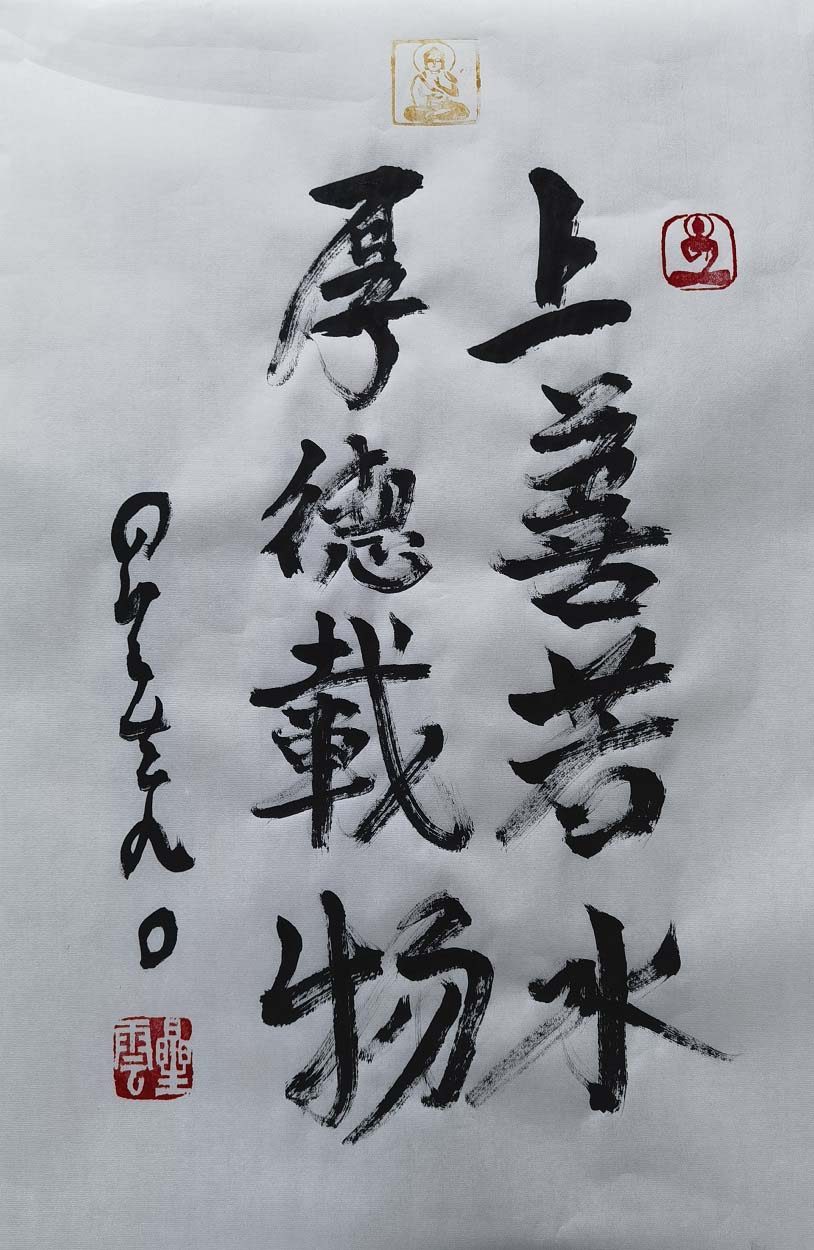 上善若水
厚德載物
星雲 九〇
星雲